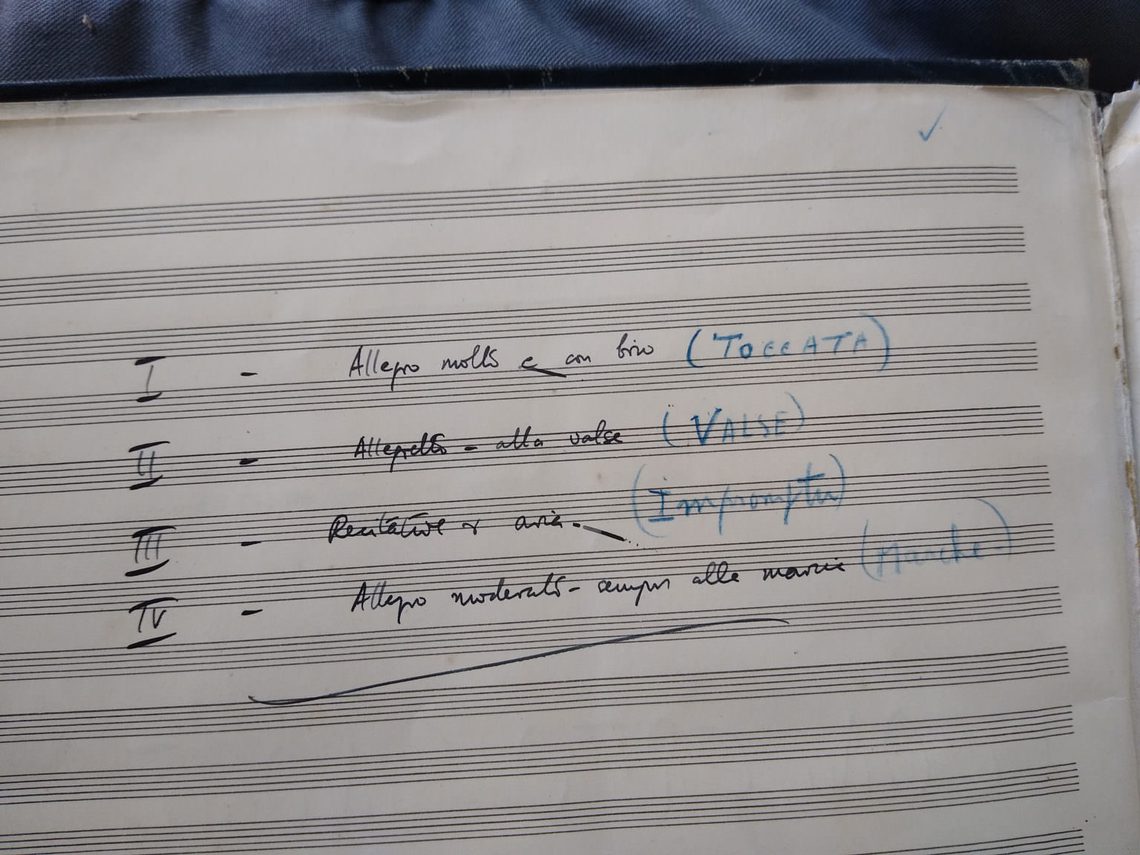 I - Allegro molto e con brio (TOCCATA)
II - Allegretto - alla valse (VALSE)
III - Recitative & aria - (Impromptu)
IV - Allegro moderato - sempre alla marcia (Marche)